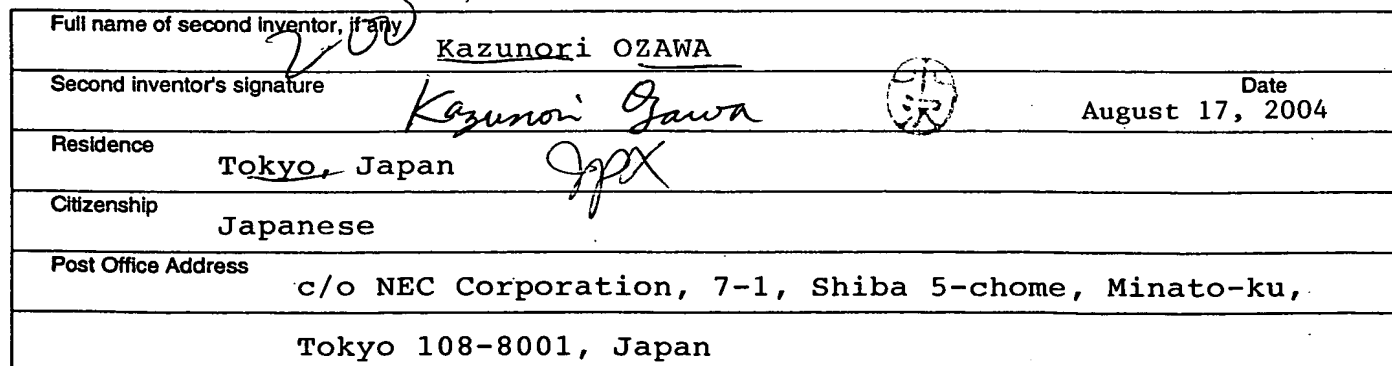 Full name of second inventor, if any
2-00
Kazunori OZAWA
Second inventor's signature
Kazunori Ozawa
Date
August 17, 2004
Residence
Tokyo, Japan JPX
Citizenship
Japanese
Post Office Address
c/o NEC Corporation, 7-1, Shiba 5-chome, Minato-ku,
Tokyo 108-8001, Japan